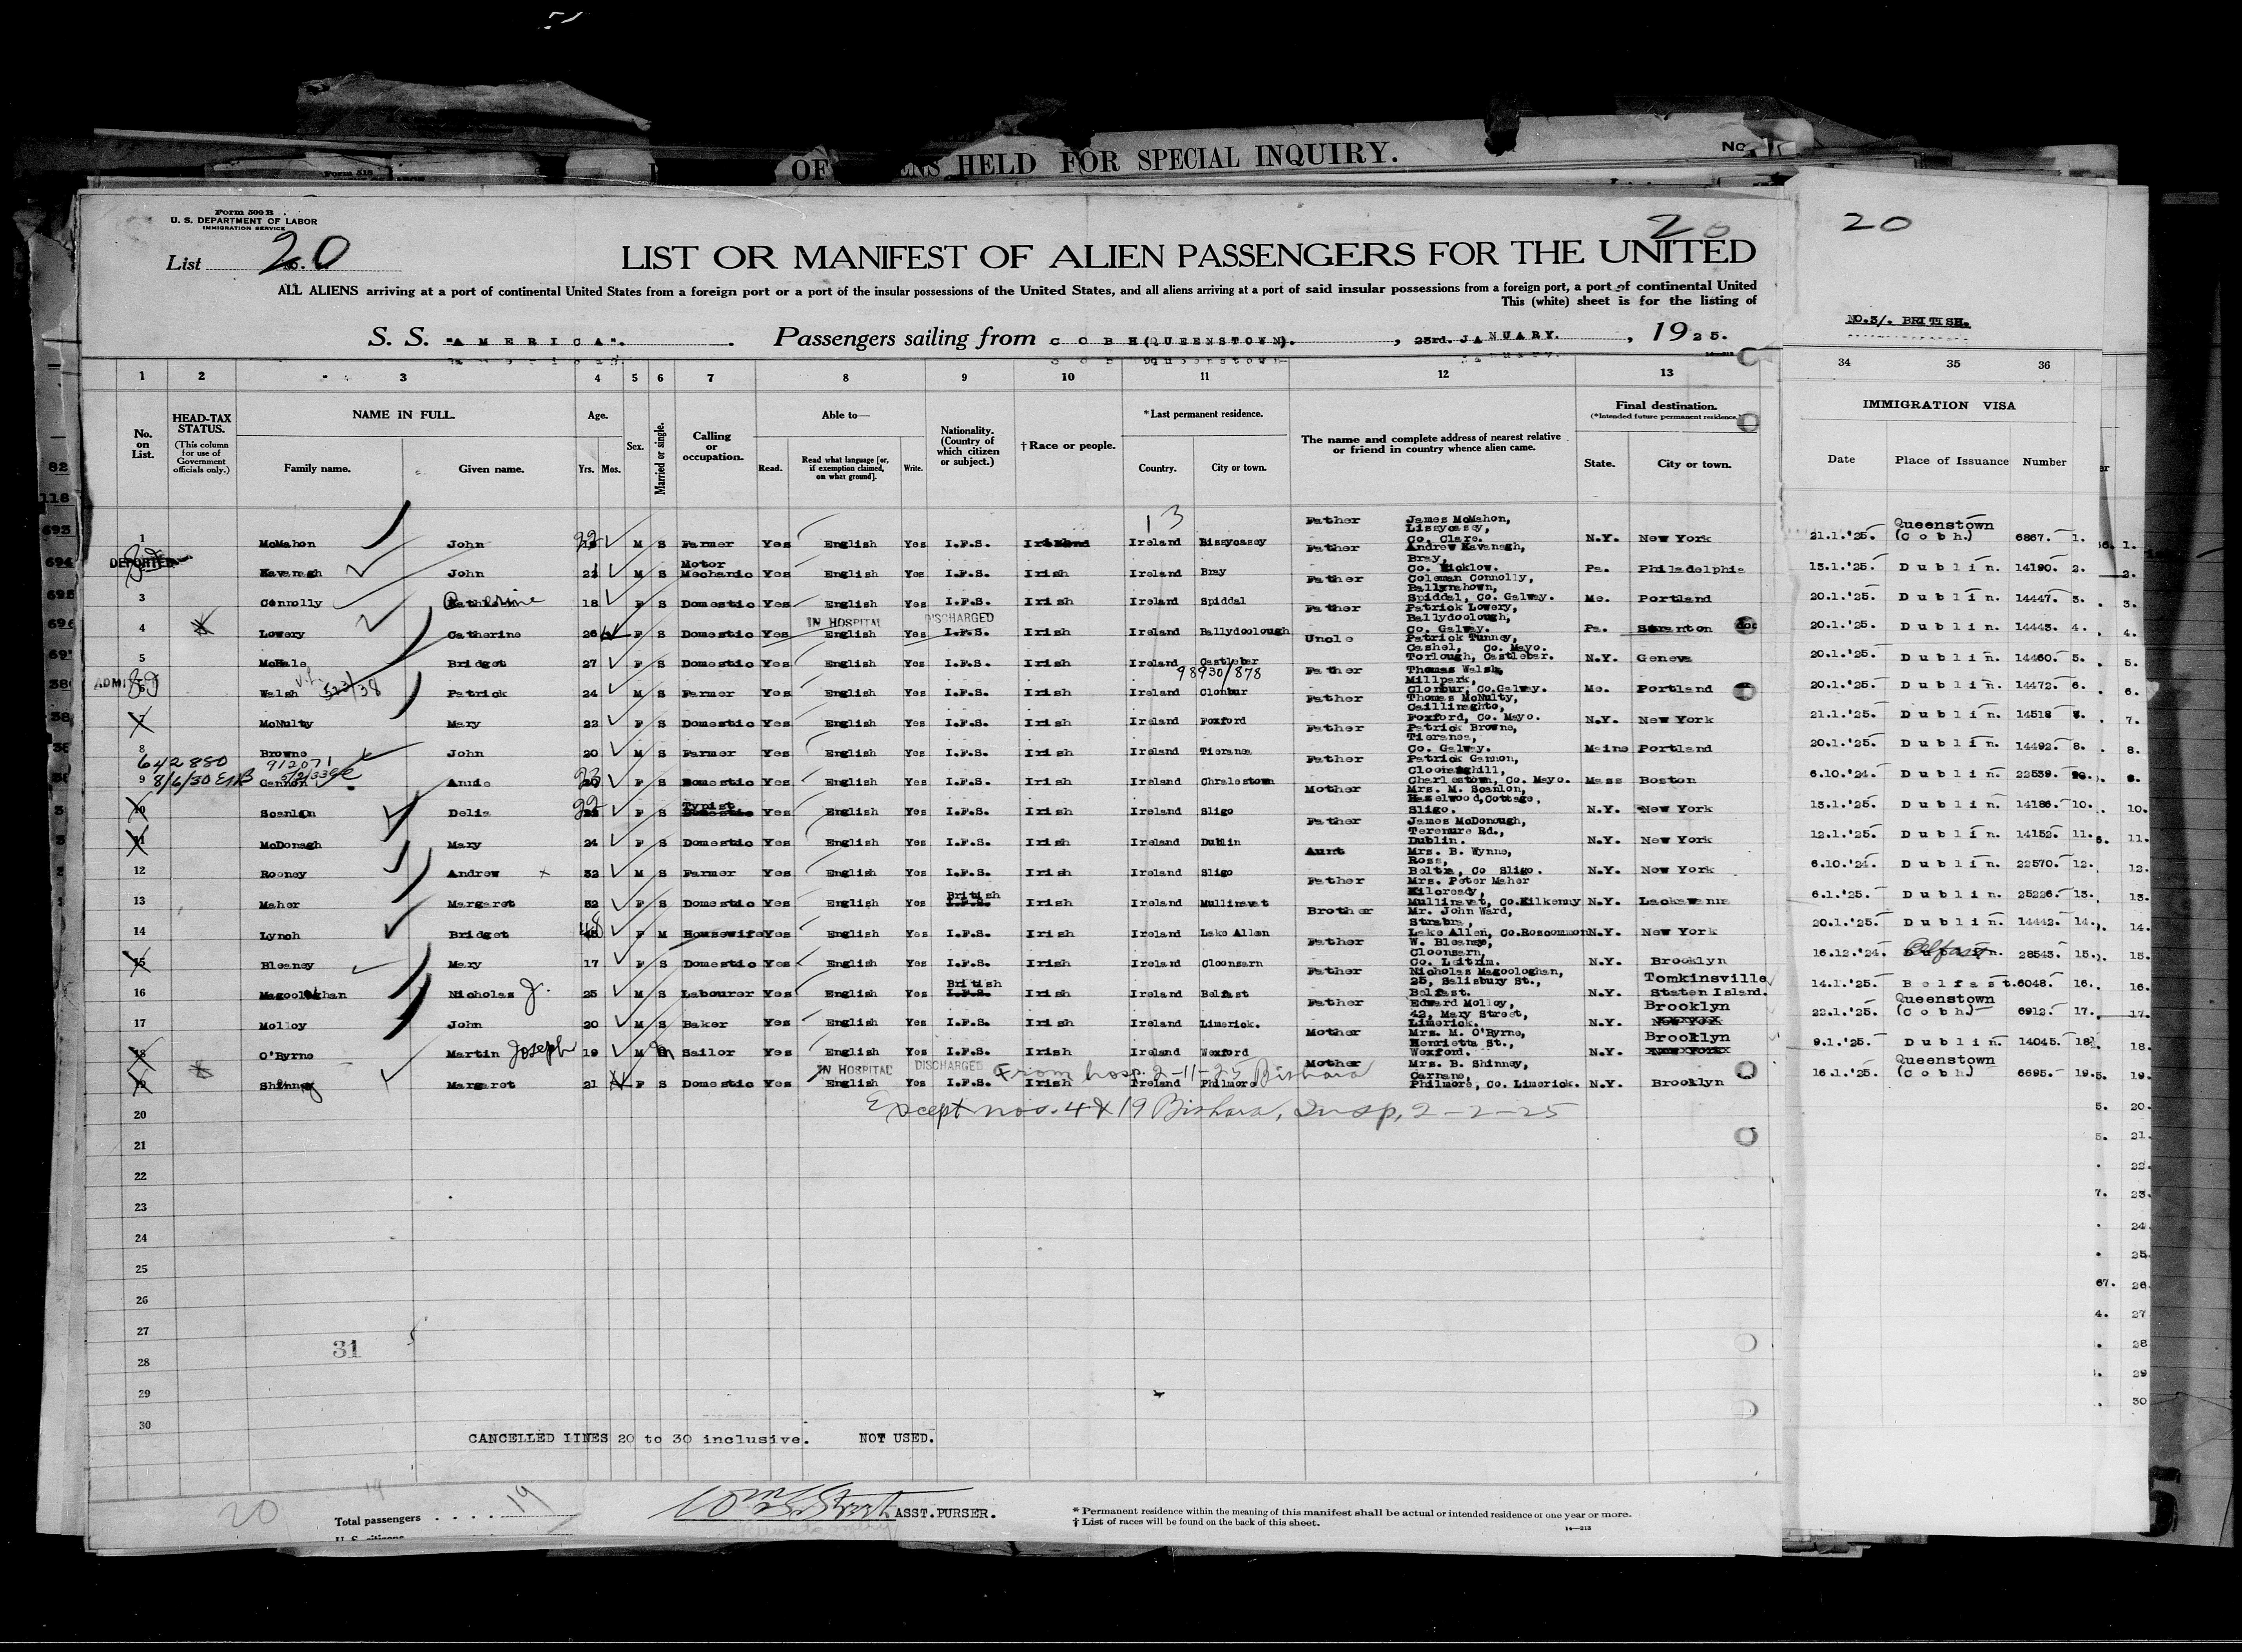 OF ENS HELD FOR SPECIAL INQUIRY.
No
Form 500 B
U. S. DEPARTMENT OF LABOR
IMMIGRATION SERVICE
List 20
20
20
LIST OR MANIFEST OF ALIEN PASSENGERS FOR THE UNITED
ALL ALIENS arriving at a port of continental United States from a foreign port or a port of the insular possessions of the United States, and all aliens arriving at a port of said insular possessions from a foreign port, a port of continental United
This (white) sheet is for the listing of
NO.3/. BRITISH.
S. S. "AMERICA". Passengers sailing from COBH(QUEENSTOWN). , 23rd. JANUARY. , 1925.
1 2 3 4 5 6 7 8 9 10 11 12 13 34 35 36
No. on List. HEAD-TAX STATUS. (This column for use of Government officials only.) NAME IN FULL. Family name. Given name. Age. Yrs. Mos. Sex. Married or single. Calling or occupation. Able to— Read. Read what language [or, if exemption claimed, on what ground]. Write. Nationality. (Country of which citizen or subject.) † Race or people. * Last permanent residence. Country. City or town. The name and complete address of nearest relative or friend in country whence alien came. Final destination. (* Intended future permanent residence.) State. City or town.
IMMIGRATION VISA Date Place of Issuance Number
13
1 McMahon John 22 M S Farmer Yes English Yes I.F.S. Irish Ireland Lissycasey Father James McMahon, Lissycasey, Co. Clare. N.Y. New York 21.1.'25. Queenstown (Cobh.) 6867. 1.
DEPORTED Kavanagh John 21 M S Motor Mechanic Yes English Yes I.F.S. Irish Ireland Bray Father Andrew Kavanagh, Bray, Co. Wicklow. Pa. Philadelphia 13.1.'25. Dublin. 14190. 2.
3 Connolly Catherine 18 F S Domestic Yes English Yes I.F.S. Irish Ireland Spiddal Father Coleman Connolly, Ballynahown, Spiddal, Co. Galway. Me. Portland 20.1.'25. Dublin. 14447. 3.
IN HOSPITAL DISCHARGED
4 Lowery Catherine 26 F S Domestic Yes English Yes I.F.S. Irish Ireland Ballydoolough Father Patrick Lowery, Ballydoolough, Co. Galway. Pa. Scranton 20.1.'25. Dublin. 14443. 4.
5 McHale Bridget 27 F S Domestic Yes English Yes I.F.S. Irish Ireland Castlebar Uncle Patrick Tunney, Cashel, Co. Mayo. Torlough, Castlebar. N.Y. Geneva 20.1.'25. Dublin. 14460. 5.
98930/878
ADMITTED Walsh 523/38 Patrick 24 M S Farmer Yes English Yes I.F.S. Irish Ireland Clonbur Father Thomas Walsh, Millpark, Clonbur, Co.Galway. Me. Portland 20.1.'25. Dublin. 14472 6.
7 McNulty Mary 22 F S Domestic Yes English Yes I.F.S. Irish Ireland Foxford Father Thomas McNulty, Caillinaghto, Foxford, Co. Mayo. N.Y. New York 21.1.'25. Dublin. 14518
8 Browne John 20 M S Farmer Yes English Yes I.F.S. Irish Ireland Tieranea Father Patrick Browne, Tieranea, Co. Galway. Maine Portland 20.1.'25. Dublin. 14492. 8.
642880 912071
9 8/6/30 Gannon Annie 23 F S Domestic Yes English Yes I.F.S. Irish Ireland Chralestown Father Patrick Gannon, Cloonaghill, Charlestown, Co. Mayo. Mass Boston 6.10.'24. Dublin. 22539.
10 Scanlon Delia 22 F S Typist Domestic Yes English Yes I.F.S. Irish Ireland Sligo Mother Mrs. M. Scanlon, Hazelwood,Cottage, Sligo. N.Y. New York 13.1.'25. Dublin. 14186. 10.
11 McDonagh Mary 24 F S Domestic Yes English Yes I.F.S. Irish Ireland Dublin Father James McDonough, Terenure Rd., Dublin. N.Y. New York 12.1.'25. Dublin. 14152. 11.
12 Rooney Andrew x 32 M S Farmer Yes English Yes I.F.S. Irish Ireland Sligo Aunt Mrs. B. Wynne, Ross, Beltra, Co Sligo. N.Y. New York 6.10.'24. Dublin. 22570. 12.
13 Maher Margaret 32 F S Domestic Yes English Yes British I.F.S. Irish Ireland Mullinavat Father Mrs. Peter Maher Kilcready, Mullinavat, Co.Kilkenny N.Y. Lackawanna 6.1.'25. Dublin. 25226. 13.
14 Lynch Bridget 48 F M Housewife Yes English Yes I.F.S. Irish Ireland Lake Allen Brother Mr. John Ward, Strabra, Lake Allen, Co.Roscommon N.Y. New York 20.1.'25. Dublin. 14442. 14.
15 Bleaney Mary 17 F S Domestic Yes English Yes I.F.S. Irish Ireland Cloonsarn Father W. Bleaney, Cloonsarn, Co. Leitrim. N.Y. Brooklyn 16.12.'24. Belfast 28543. 15.
16 Magoologhan Nicholas J. 25 M S Labourer Yes English Yes British I.F.S. Irish Ireland Belfast Father Nicholas Magoologhan, 25, Salisbury St., Belfast. N.Y. Tomkinsville, Staten Island. 14.1.'25. Belfast. 6048. 16.
17 Molloy John 20 M S Baker Yes English Yes I.F.S. Irish Ireland Limerick. Father Edward Molloy, 42, Mary Street, Limerick. N.Y. Brooklyn 22.1.'25. Queenstown (Cobh.) 6912. 17.
18 O'Byrne Martin Joseph 19 M m Sailor Yes English Yes I.F.S. Irish Ireland Wexford Mother Mrs. M. O'Byrne, Henrietta St., Wexford. N.Y. Brooklyn 9.1.'25. Dublin. 14045. 18.
IN HOSPITAL DISCHARGED From hosp. 2-11-25 Bishara
19 Shinney Margaret 21 F S Domestic Yes English Yes I.F.S. Irish Ireland Philmore Mother Mrs. B. Shinney, Carnane, Philmore, Co. Limerick. N.Y. Brooklyn 16.1.'25. Queenstown (Cobh.) 6695. 19.
20 Except nos. 4 & 19 Bishara, Insp, 2-2-25
21
22
23
24
25
26
27
31
28
29
30
CANCELLED LINES 20 to 30 inclusive. NOT USED.
20
Total passengers . . . . . 19
ASST.PURSER.
* Permanent residence within the meaning of this manifest shall be actual or intended residence of one year or more.
† List of races will be found on the back of this sheet.
14—213